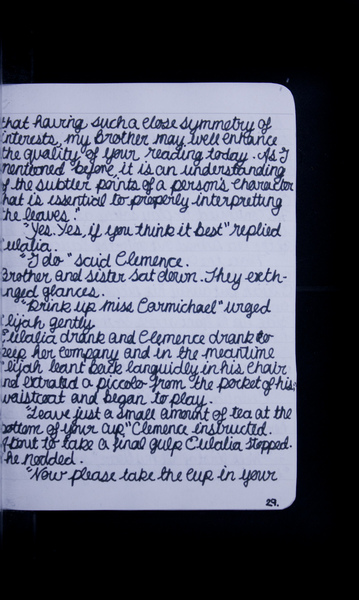 that having such a close symmetry of
interests, my brother may well enhance
the quality of your reading today. As I
mentioned before, it is an understanding
of the subtler points of a person's character
hat is essential to properly interpretting
the leaves."
"Yes. Yes, if you think it best" replied
Eulalia.
"I do" said Clemence.
Brother and sister sat down. They exch-
anged glances.
"Drink up Miss Carmichael" urged
Elijah gently.
Eulalia drank and Clemence drank to
keep her company and in the meantime
Elijah leant back languidly in his chair
and extrated a piccolo from the pocket of his
waistcoat and began to play.
"Leave just a small amount of tea at the
bottom of your cup" Clemence instructed.
About to take a final gulp Eulalia stopped.
She nodded.
"Now please take the cup in your
29.